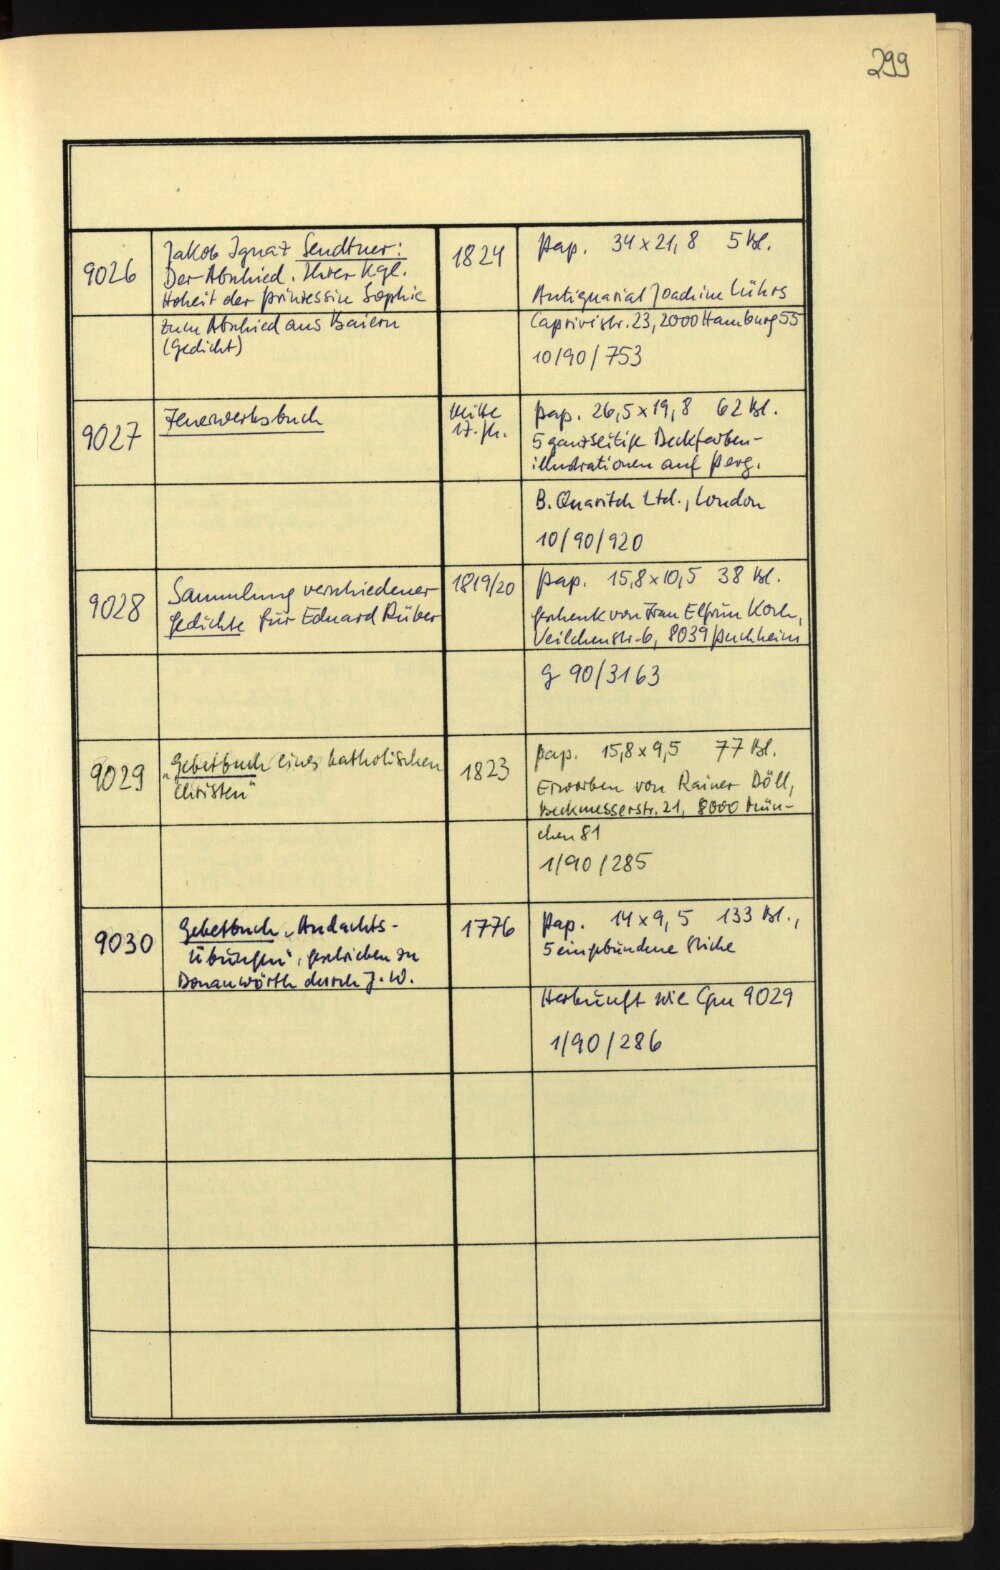 299
9026
Jakob Ignaz Sendtner:
Der Abschied. Ihrer Kgl.
Hoheit der Prinzessin Sophie
zum Abschied aus Baiern
(Gedicht)
1824
Pap. 34 x 21,8 5 Bl.
Antiquariat Joachim Lührs
Caprivistr. 23, 2000 Hamburg 55
10/90/753
9027
Feuerwerksbuch
Mitte
17. Jh.
Pap. 26,5 x 19,8 62 Bl.
5 ganzseitige Deckfarben-
illustrationen auf Perg.
B. Quaritch Ltd., London
10/90/920
9028
Sammlung verschiedener
Gedichte für Eduard Rüber
1819/20
Pap. 15,8 x 10,5 38 Bl.
Geschenk von Frau Elfrun Koch,
Veilchenstr. 6, 8039 Puchheim
g 90/3163
9029
"Gebetbuch eines katholischen
Christen"
1823
Pap. 15,8 x 9,5 77 Bl.
Erworben von Rainer Döll,
Beckmesserstr. 21, 8000 Mün-
chen 81
1/90/285
9030
Gebetbuch "Andachts-
übungen", geschrieben zu
Donauwörth durch J. W.
1776
Pap. 14 x 9,5 133 Bl.,
5 eingebundene Stiche
Herkunft wie Cgm 9029
1/90/286